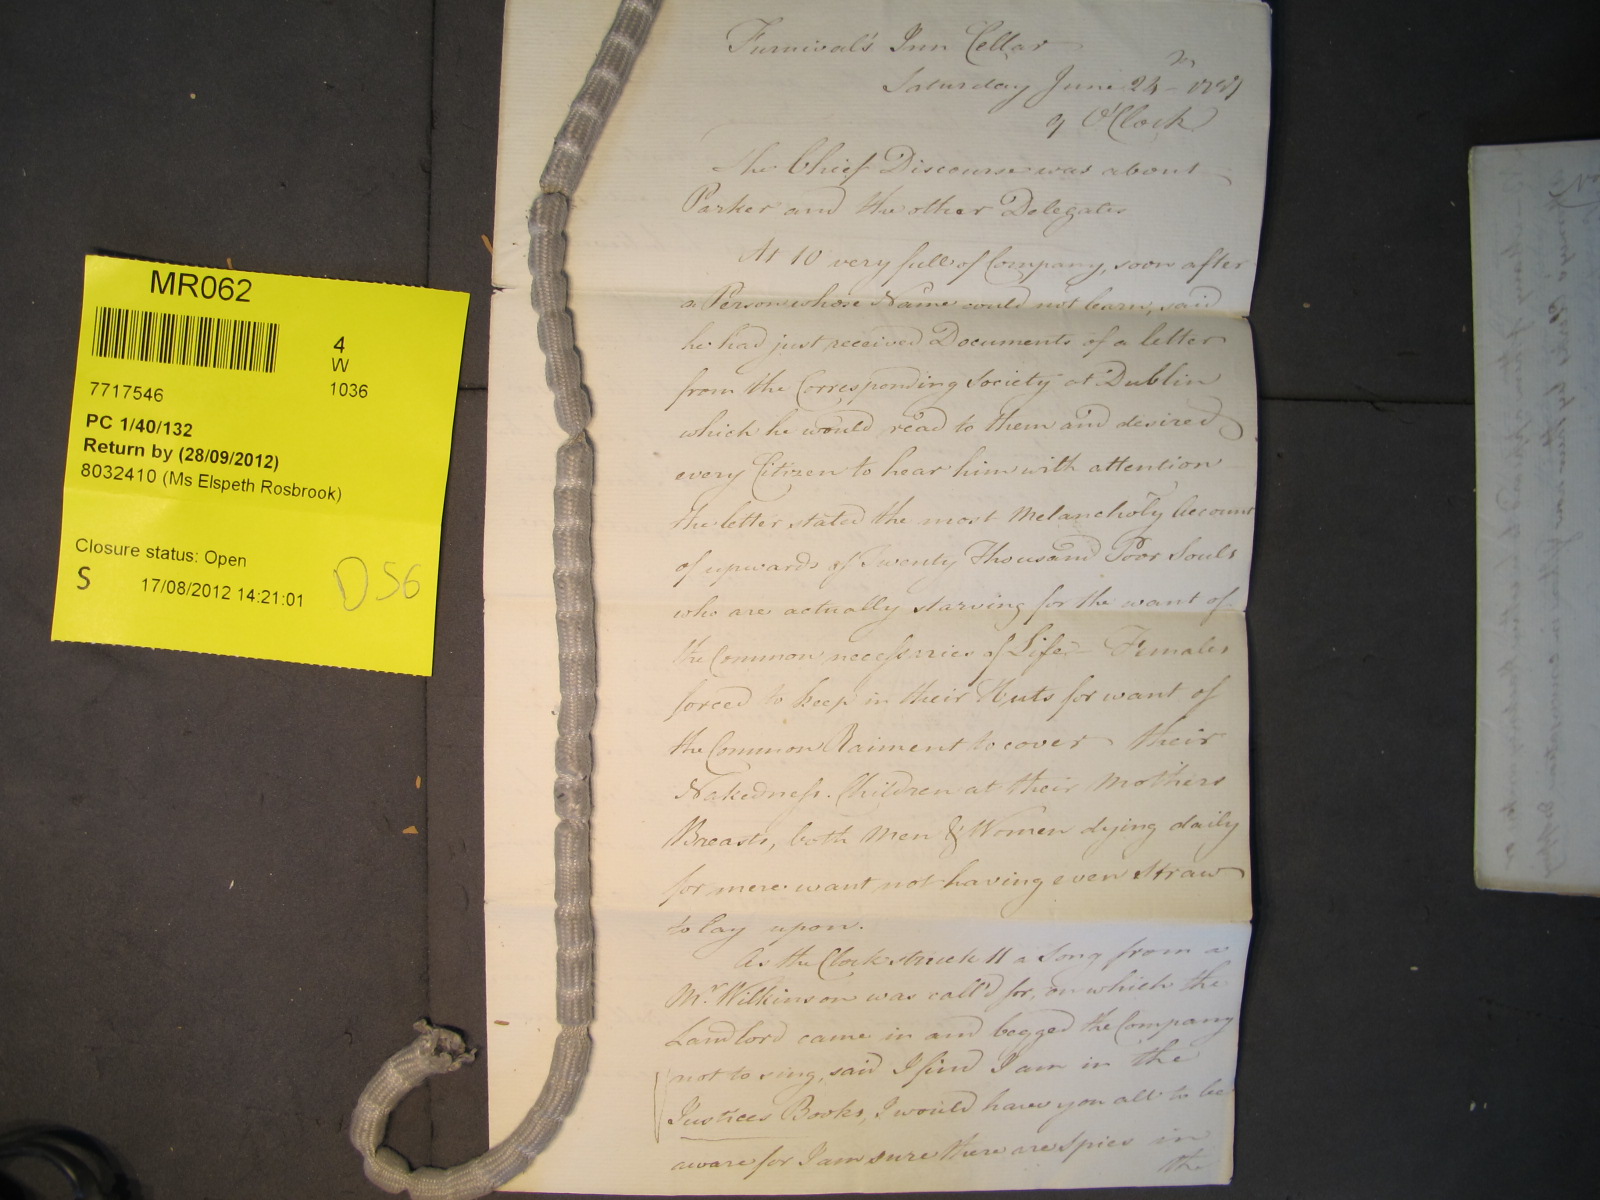 Furnival's Inn Cellar
Saturday June 24th 1797
9 O'Clock
The Chief Discourse was about
Parker and the other Delegates
At 10 very full of Company, soon after
a Person whose Name could not learn, said
he had just received Documents of a letter
from the Corresponding Society at Dublin
which he would read to them and desired
every Citizen to hear him with attention
the letter stated the most Melancholy Account
of upwards of Twenty Thousand Poor Souls
who are actually starving for the want of
the Common necessaries of Life - Females
forced to keep in their Huts for want of
the Common Raiment to cover their
Nakedness. Children at their Mothers
Breasts, both Men & Women dying daily
for mere want not having even Straw
to lay upon.
As the Clock struck 11 a Song from a
Mr. Wilkinson was call'd for, on which the
Landlord came in and begged the Company
not to sing, said I find I am in the
Justices Books, I would have you all to be
aware for I am sure there are Spies in
the
MR062
4
W
7717546
1036
PC 1/40/132
Return by (28/09/2012)
8032410 (Ms Elspeth Rosbrook)
Closure status: Open
S
17/08/2012 14:21:01
D56